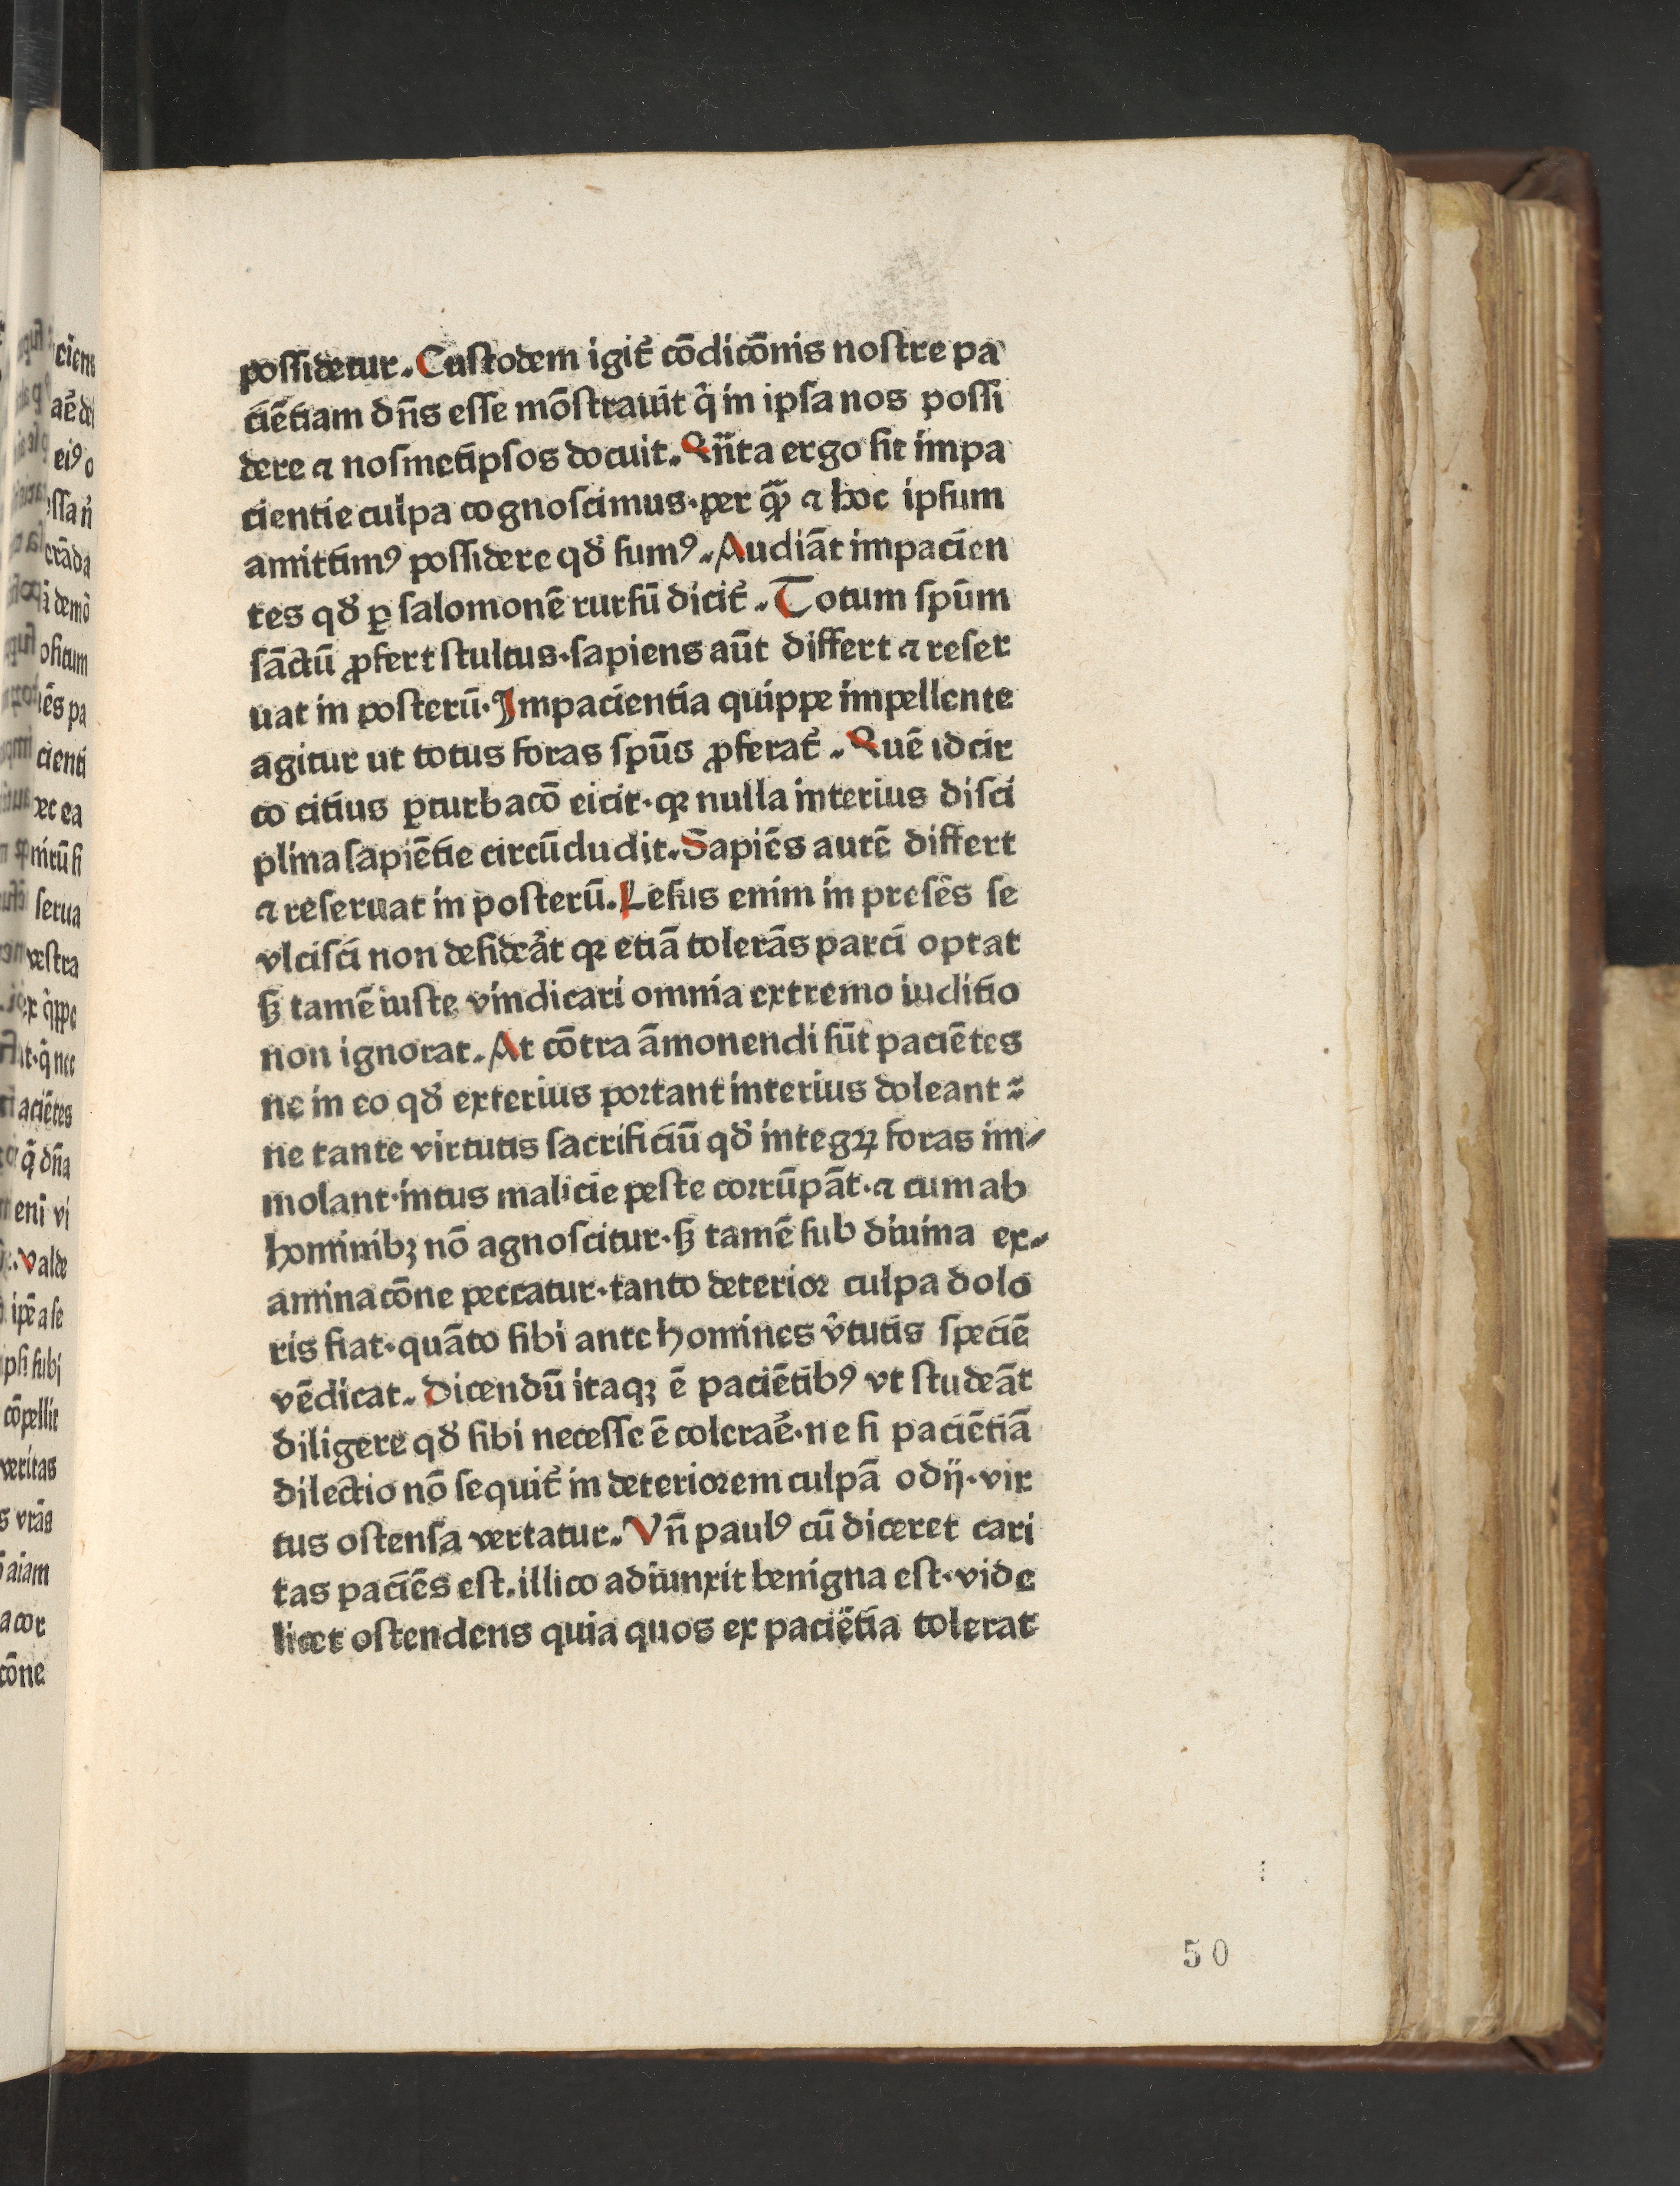 possidetur. Custodem igit̉ cōdicōnis nostre pa
ciētiam dn̄s esse mōstrauit q̄ in ipsa nos possi
dere ⁊ nosmetipsos docuit. Qn̄ta ergo sit impa
cientie culpa cognoscimus·per q̄ꝫ ⁊ hoc ipsum
amittimꝰ possidere qđ sumꝰ. Audiāt impacien
tes qđ ꝑ salomonē rursū dicit̉. Totum spūm
sāctū ꝓfert stultus·sapiens aūt differt ⁊ reser
uat in posterū. Impacientia quippe impellente
agitur ut totus foras spūs ꝓferat̉. Quē idcir
co citius ꝑturbacō eicit·qꝛ nulla interius disci
plina sapiētie circūcludit. Sapiēs autē differt
⁊ reseruat in posterū. Lesus enim in presēs se
vlcisci non desideāt qꝛ etiā tolerās parci optat
sꝫ tamē iuste vindicari omnia extremo iuditio
non ignorat. At cōtra āmonendi sūt paciētes
ne in eo qđ exterius portant interius doleant ⁊
ne tante virtutis sacrificiū qđ integꝝ foras im/
molant·intus malicie peste corrūpāt·⁊ cum ab
hominibꝫ nō agnoscitur·sꝫ tamē sub diuina ex/
aminacōne peccatur·tanto deterior culpa dolo
ris fiat·quāto sibi ante homines v̉tutis speciē
vēdicat. Dicendū itaqꝫ ē paciētibꝰ vt studeāt
diligere qđ sibi necesse ē coleraẻ·ne si paciētiā
dilectio nō sequit̉ in deteriorem culpā odij·vir
tus ostensa vertatur. Vn̄ paulꝰ cū diceret cari
tas paciēs est. illico adiunxit benigna est·vide
licet ostendens quia quos ex paciētia tolerat
50